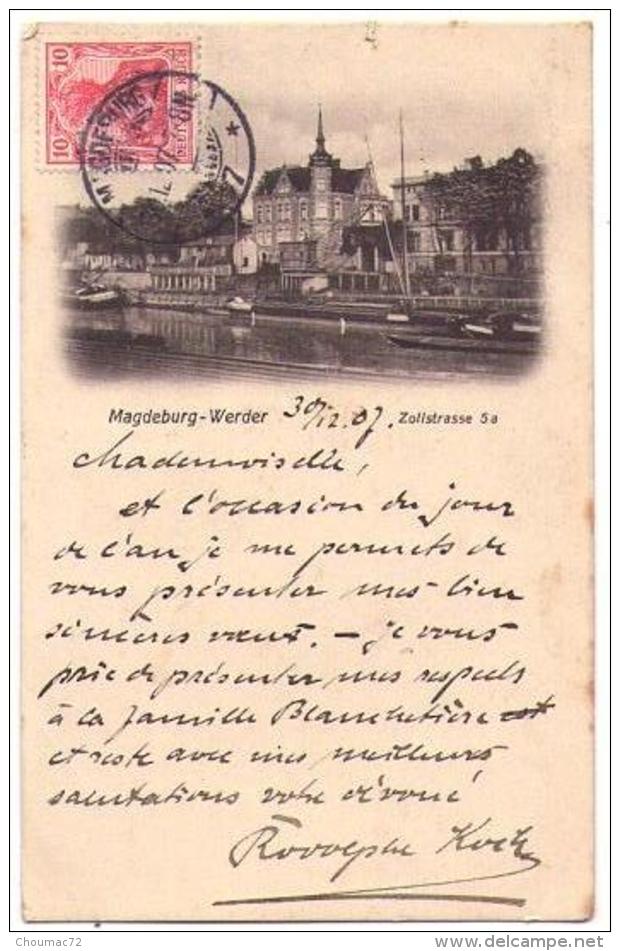 10
10
DEUTSCHES REICH
MAGDEBURG
Magdeburg-Werder 30/12.07. Zollstrasse 5a
Mademoiselle,
et l'occasion du jour
de l'an je me permets de
vous présenter mes bien
sincères voeux. – je vous
prie de présenter mes respects
à la famille Blanchetière
et reste avec mes meilleures
salutations votre dévoué
Rodolphe Koch
Choumac72
www.delcampe.net